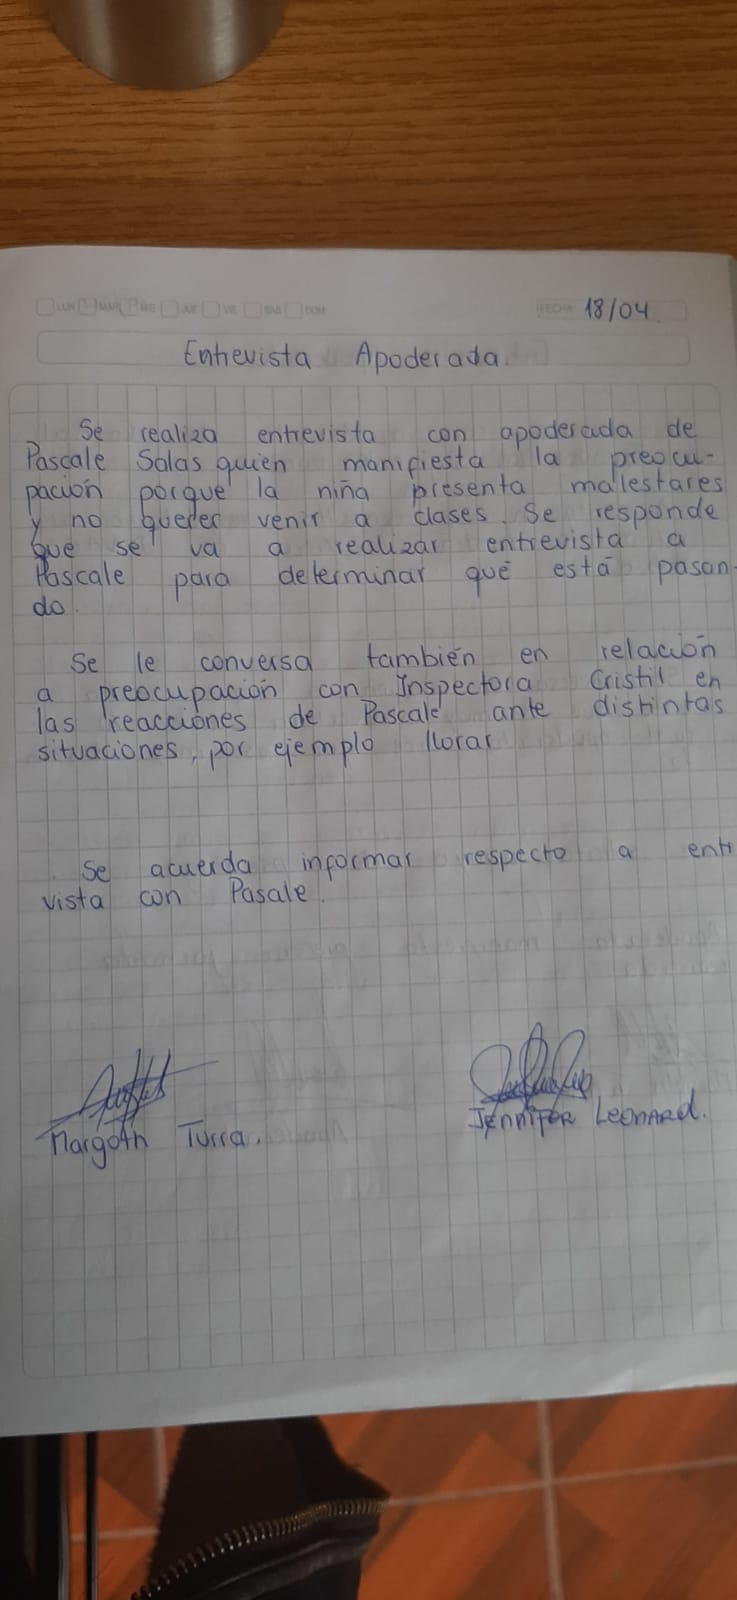 LUN MAR MIE JUE VIE SAB DOM
FECHA 18/04
Entrevista Apoderada.
Se realiza entrevista con apoderada de
Pascale Salas quien manifiesta la preocu-
pación porque la niña presenta malestares
y no querer venir a clases. Se responde
que se va a realizar entrevista a
Pascale para determinar qué está pasan-
do.
Se le conversa también en relación
a preocupación con Inspectora Cristil en
las reacciones de Pascale ante distintas
situaciones, por ejemplo llorar
Se acuerda informar respecto a entr
vista con Pasale.
Margoth Turra.
JENNIFER LEONARD.